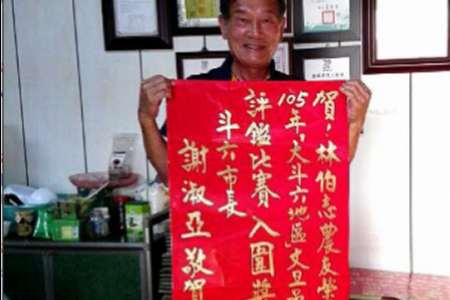 賀！林伯志農友榮
105年「大斗六地區」文旦
評鑑比賽入圍獎
斗六市長
謝淑亞敬賀